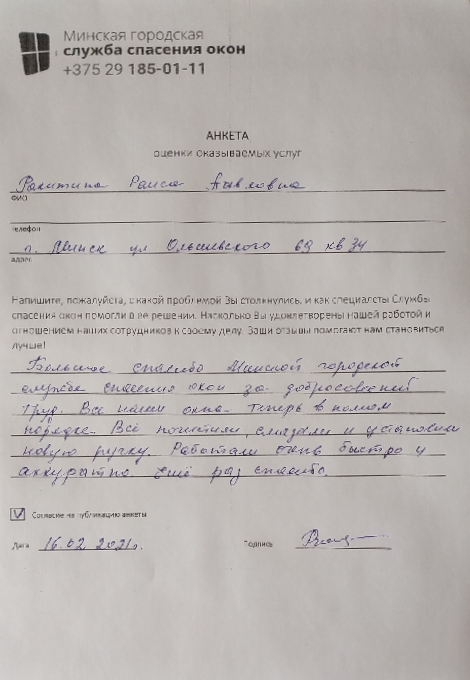 Минская городская
служба спасения окон
+375 29 185-01-11
АНКЕТА
оценки оказываемых услуг
Ракитина Раиса Павловна
ФИО
телефон
г. Минск ул Ольшевского 69 кв 34
адрес
Напишите, пожалуйста, с какой проблемой Вы столкнулись, и как специалсты Службы
спасения окон помогли в ее решении. Насколько Вы удовлетворены нашей работой и
отношением наших сотрудников к своему делу. Ваши отзывы помогают нам становиться
лучше!
Большое спасибо Минской городской
службе спасения окон за добросовесный
труд. Все наши окна теперь в полном
порядке. Всё почистили, смазали и установили
новую ручку. Работали очень быстро и
аккуратно ещё раз спасибо.
Согласие на публикацию анкеты
Дата 16.02 2021г. Подпись